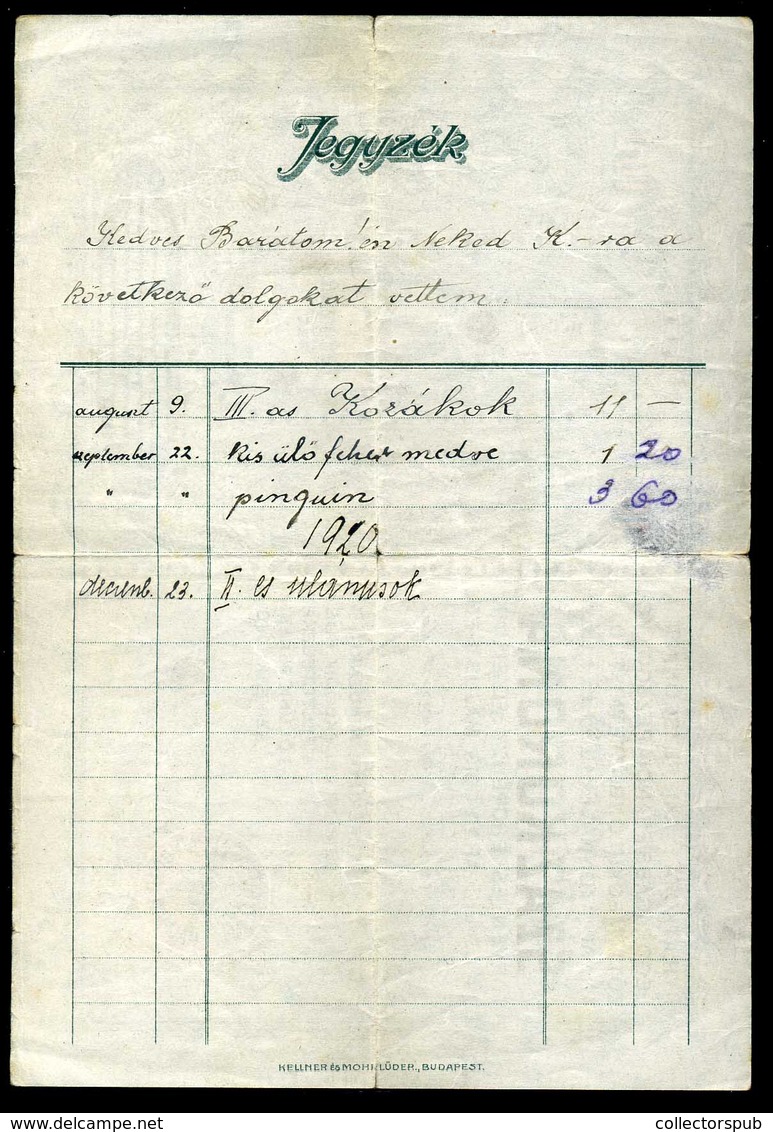 Jegyzék
Kedves Barátom! én Neked K.-ra a
következő dolgokat vettem.
auguszt 9. III. as Kozákok 11 —
szeptember 22. kis ülő feher medve 1 20
" " pinguin 3 60
1920
decemb. 23. II. es ulánusok
KELLNER és MOHRLÜDER., BUDAPEST.
collectorspub